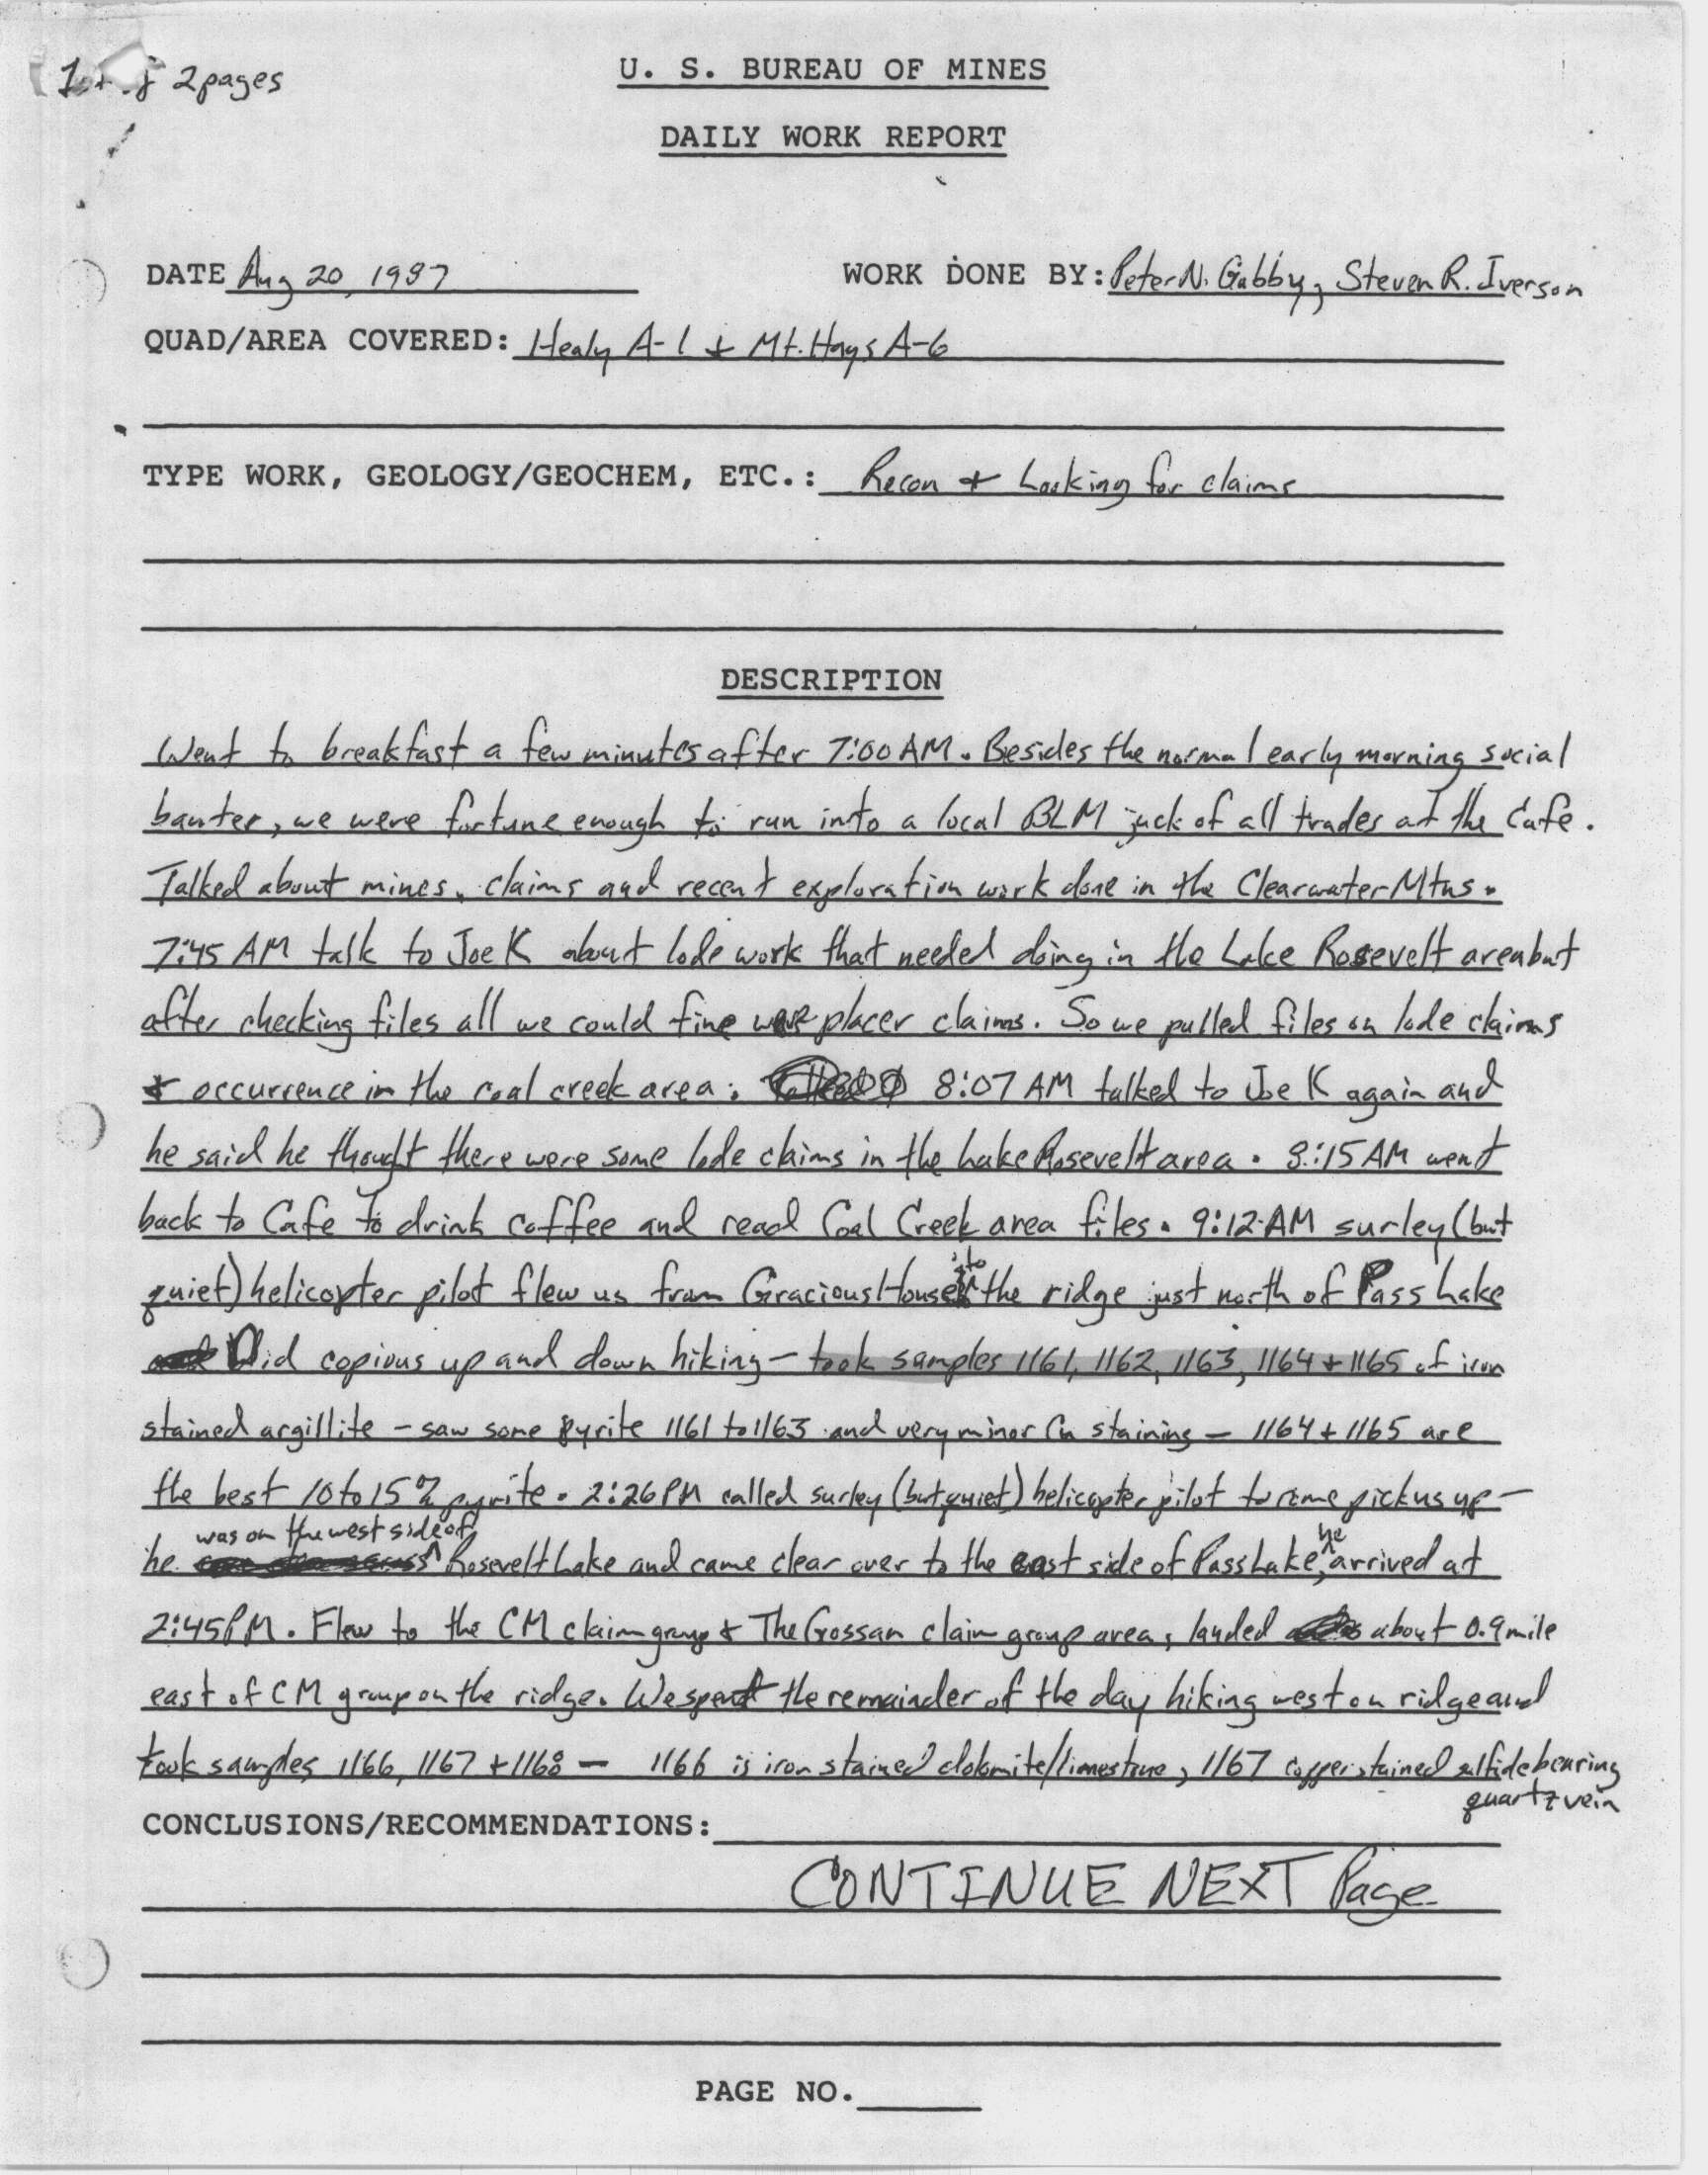 1st of 2 pages
U. S. BUREAU OF MINES
DAILY WORK REPORT
DATE Aug 20, 1987 WORK DONE BY: Peter N. Gabby, Steven R. Iverson
QUAD/AREA COVERED: Healy A-1 + Mt. Hays A-6
TYPE WORK, GEOLOGY/GEOCHEM, ETC.: Recon + Looking for claims
DESCRIPTION
Went to breakfast a few minutes after 7:00 AM. Besides the normal early morning social
banter, we were fortune enough to run into a local BLM jack of all trades at the Cafe.
Talked about mines, claims and recent exploration work done in the Clearwater Mtns.
7:45 AM talk to Joe K about lode work that needed doing in the Lake Rosevelt area but
after checking files all we could fine were placer claims. So we pulled files on lode claims
+ occurrence in the coal creek area. 8:07 AM talked to Joe K again and
he said he thought there were some lode claims in the Lake Rosevelt area. 8:15 AM went
back to Cafe to drink coffee and read Coal Creek area files. 9:12 AM surley (but
quiet) helicopter pilot flew us from Gracious House to the ridge just north of Pass Lake
Did copious up and down hiking - took samples 1161, 1162, 1163, 1164 + 1165 of iron
stained argillite - saw some pyrite 1161 to 1163 and very minor Cu staining - 1164 + 1165 are
the best 10 to 15% pyrite. 2:26 PM called surley (but quiet) helicopter pilot to come pick us up -
he was on the west side of Rosevelt Lake and came clear over to the east side of Pass Lake, he arrived at
2:45 PM. Flew to the CM claim group + The Gossan claim group area, landed about 0.9 mile
east of CM group on the ridge. We spent the remainder of the day hiking west on ridge and
took samples 1166, 1167 + 1168 - 1166 is iron stained dolomite/limestone, 1167 copper stained sulfide bearing
quartz vein
CONCLUSIONS/RECOMMENDATIONS:
CONTINUE NEXT Page
PAGE NO.